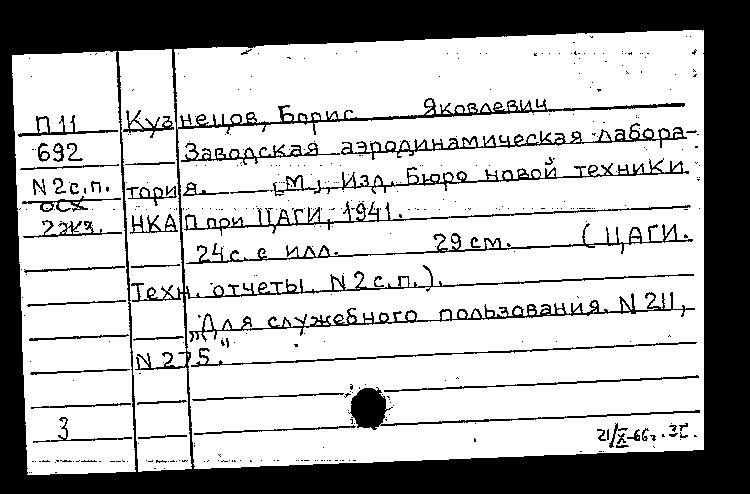 П11 Кузнецов, Борис Яковлевич
692 Заводская аэродинамическая лабора-
N2с.п. тория. [М], Изд. Бюро новой техники
осх
2экз. НКАП при ЦАГИ, 1941.
24с. с илл. 29см. (ЦАГИ.
Техн. отчеты. N2с.п.).
„Для служебного пользования. N211,
N275."
3
21/X-66г.